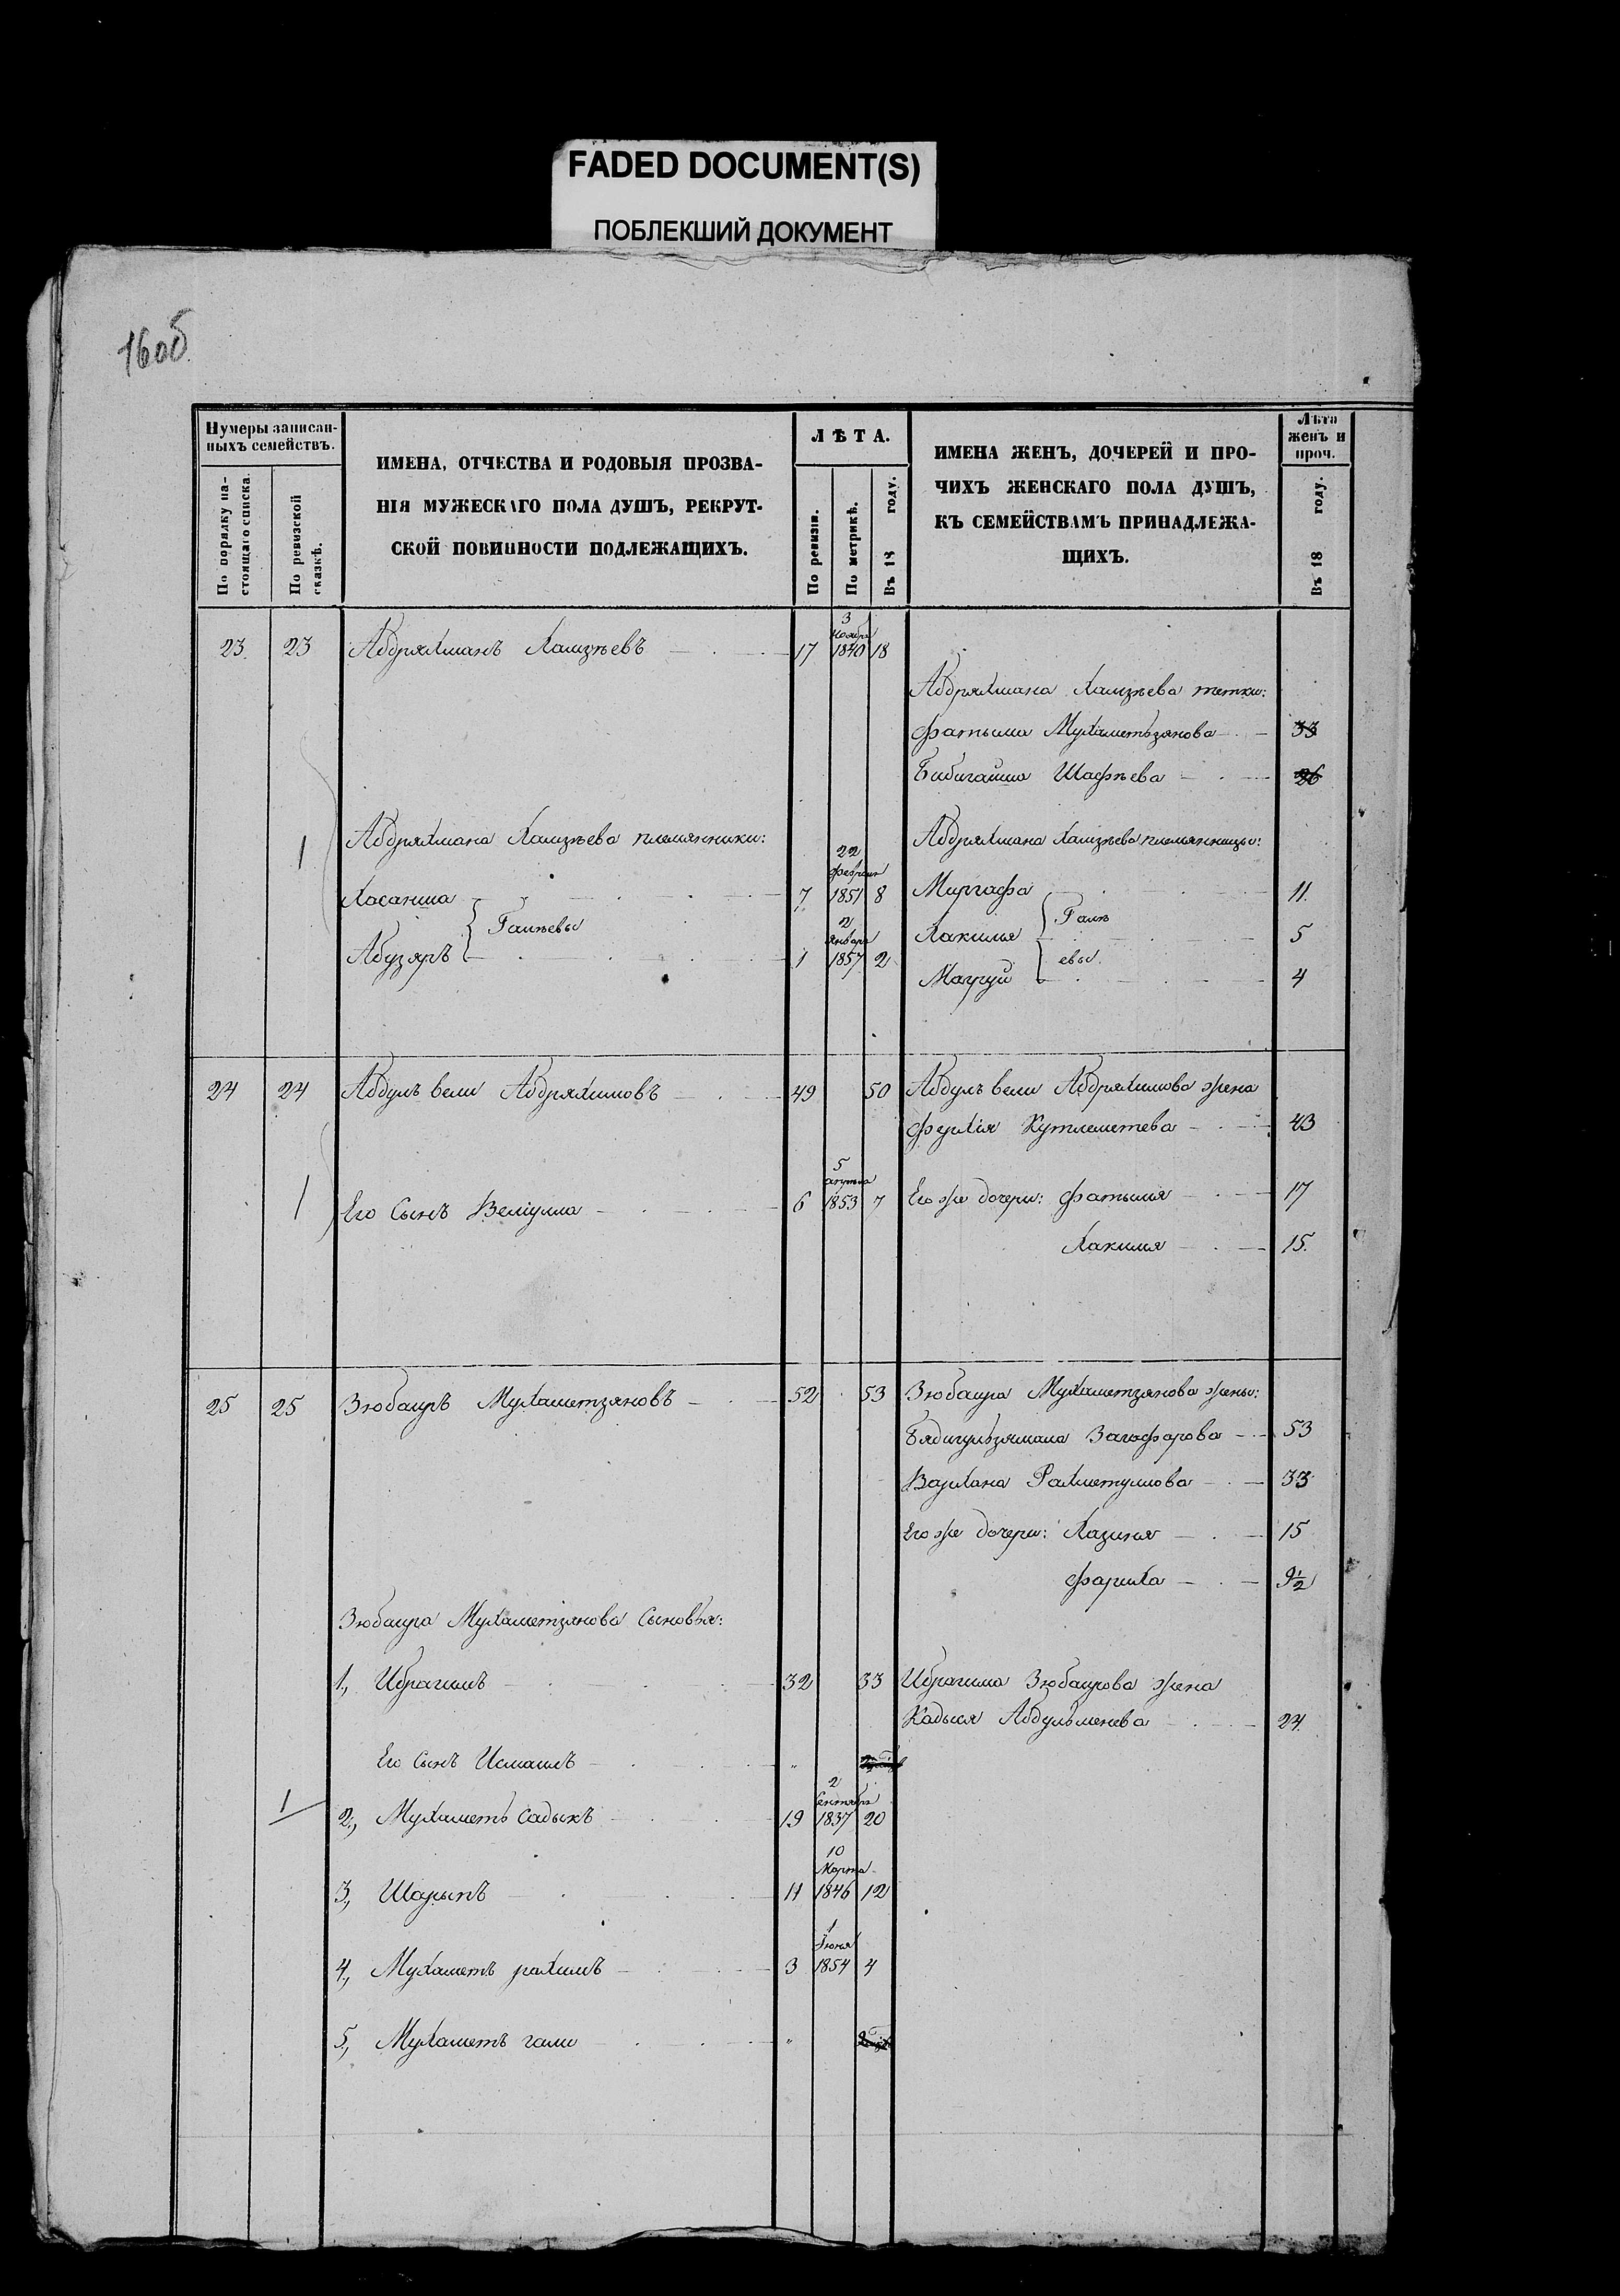 FADED DOCUMENT(S)
ПОБЛЕКШИЙ ДОКУМЕНТ
160б
Нумеры записан-
ныхъ семействъ.
По порядку на-
стоящаго списка.
По ревизской
сказкѣ.
ИМЕНА, ОТЧЕСТВА И РОДОВЫЯ ПРОЗВА-
НІЯ МУЖЕСКАГО ПОЛА ДУШЪ, РЕКРУТ-
СКОЙ ПОВИННОСТИ ПОДЛЕЖАЩИХЪ.
ЛѢТА.
По ревизіи.
По метрикѣ.
Въ 18 году.
ИМЕНА ЖЕНЪ, ДОЧЕРЕЙ И ПРО-
ЧИХЪ ЖЕНСКАГО ПОЛА ДУШЪ,
КЪ СЕМЕЙСТВАМЪ ПРИНАДЛЕЖА-
ЩИХЪ.
Лѣта
женъ и
проч.
Въ 18 году.
3
Ноября
23. 23 Абдряхманъ Хамзѣевъ 17 1840 18
Абдряхмана Хамзѣева тетки:
Фатыма Мухаметьзянова 33
Бибигайша Шафѣева 26
Абдряхмана Хамзѣева племянники: Абдряхмана Хамзѣева племянницы:
1
22
февраля
Хасанша 7 1851 8 Миргафа 11.
Галѣевы Галѣ
2
января
Абузяръ 1 1857 2 Хакимя 5
евы.
4
24 24 Абдулъ вели Абдряхимовъ 49 50 Абдулъ вели Абдряхимова жена
Кутлеметева 43
5
августа
1 Его Сынъ Велиулла 6 1853 7 Его же дочери: Фатыма 17
Хакимя 15.
25 25 Зюбаиръ Мухаметзяновъ 52 53 Зюбаира Мухаметзянова жены:
Бядигульзямала Загафарова 53
Рахметуллова 33
Его же дочери: Хазиня 15
Фариха 9½
Зюбаира Мухаметзянова Сыновья:
1, Ибрагимъ 32 33 Ибрагима Зюбаирова жена
Кадыся Абдульменева 24.
Его Сынъ Исмаилъ "
2
Сентября
1 2, Мухаметъ Садыкъ 19 1837 20
10
Марта
3, Шарыпъ 11 1846 12
1
Іюня
4, Мухаметъ рахимъ 3 1854 4
5, Мухаметъ гали "